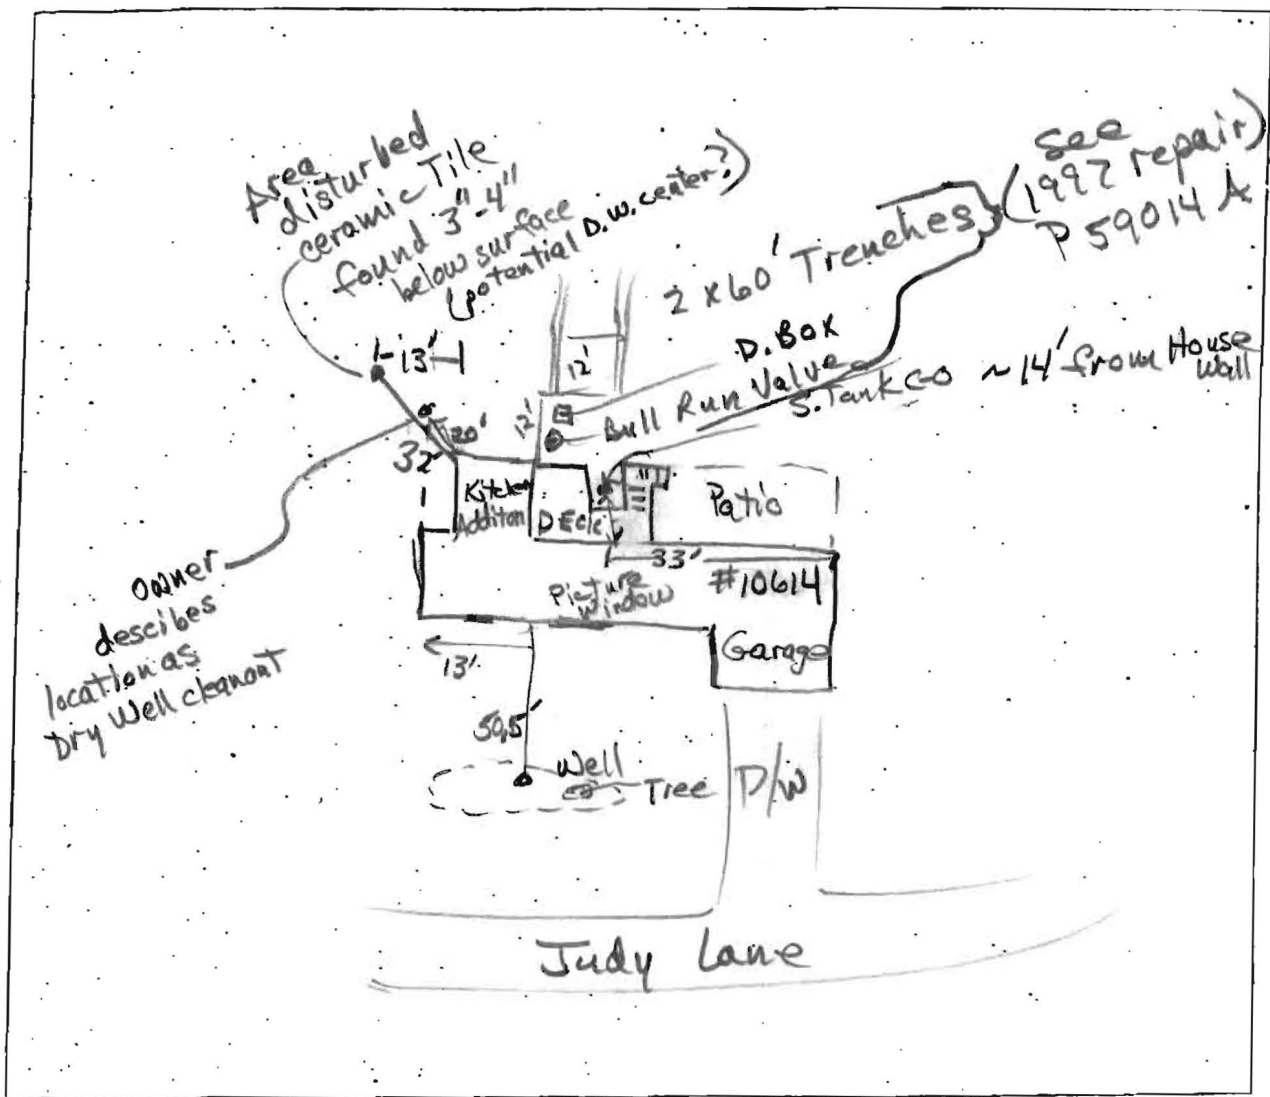 Area
disturbed
ceramic Tile
found 3"-4"
below surface
(potential D.W. center?)
See
(1997 repair)
P 59014 A
2 x 60' Trenches
D. Box
Bull Run Valve
S. Tank CO ~14' from House
Wall
13'
12'
12'
20'
32'
Kitchen
Additon
DEck
Patio
33'
#10614
Picture
window
Garage
owner
descibes
location as
Dry Well cleanout
13'
50.5'
Well
Tree
D/W
Judy Lane